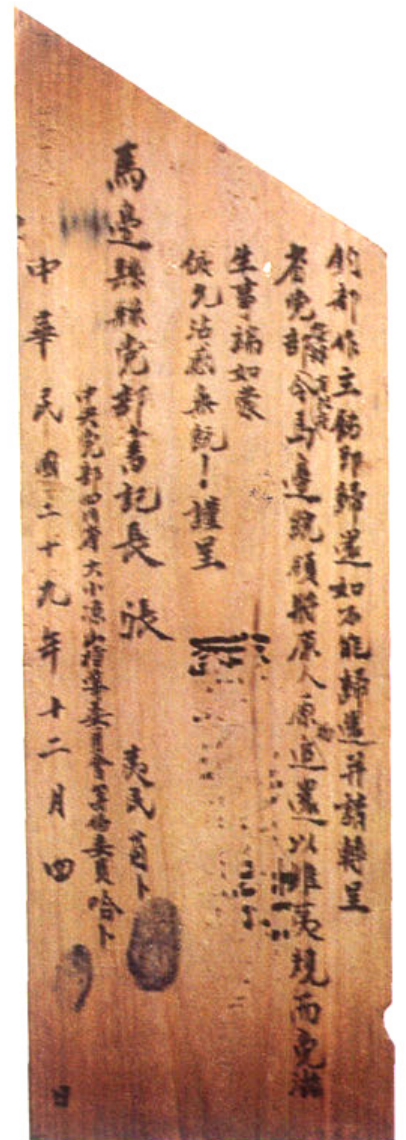 鈞部作主飭即歸還如不能歸還并請轉呈
省党部令馬邊說頒將原人原追還以維夷規而免滋
生事端如蒙
俯允沾感無既！謹呈
馬邊縣縣党部書記長 張
夷民 卜
中央党部四川省大小凉山指導委員會籌備委員哈卜
中華民國二十九年十二月四日